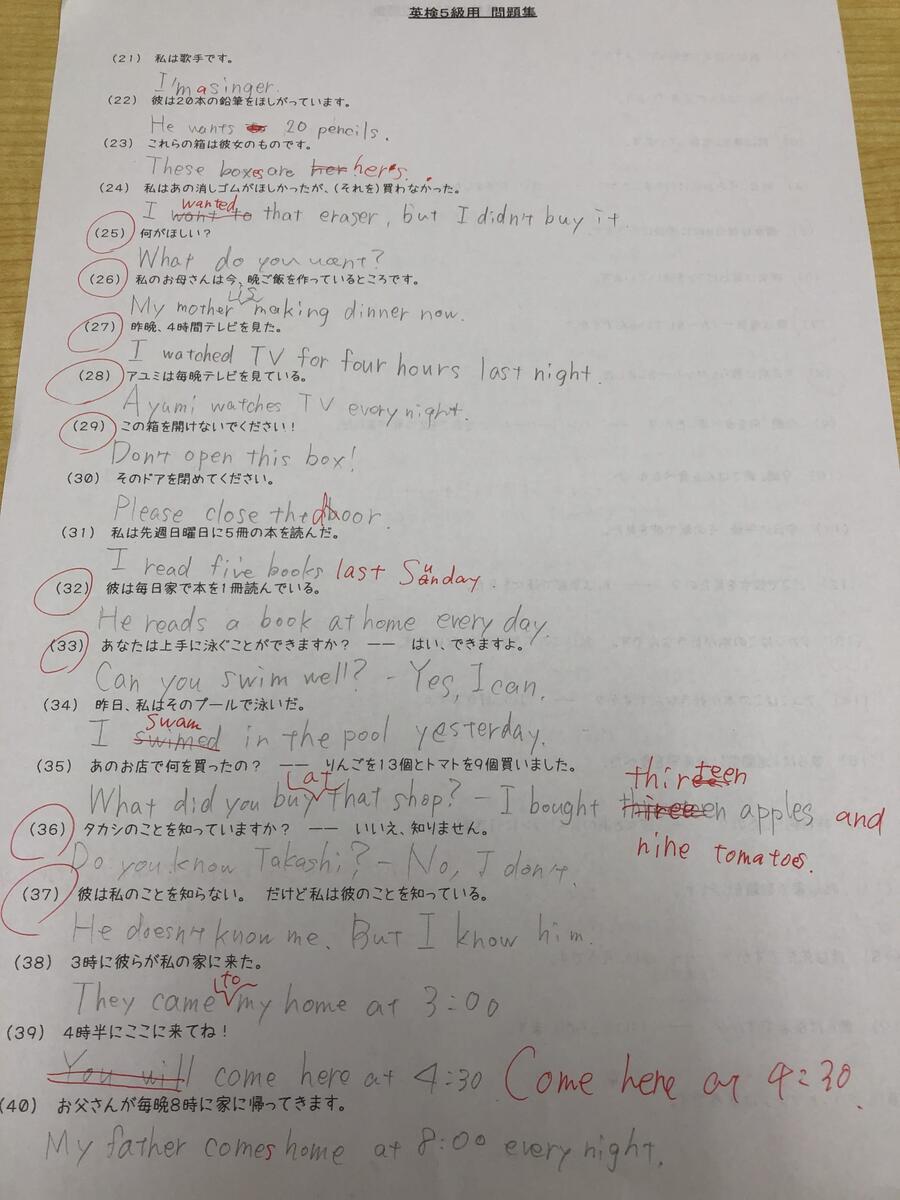 英検5級用 問題集
(21) 私は歌手です。
I'm a singer.
(22) 彼は20本の鉛筆をほしがっています。
He wants 20 pencils.
(23) これらの箱は彼女のものです。
These boxes are her hers.
(24) 私はあの消しゴムがほしかったが、(それを)買わなかった。
wanted
I want to that eraser, but I didn't buy it
(25) 何がほしい?
What do you want?
(26) 私のお母さんは今、晩ご飯を作っているところです。
is
My mother making dinner now.
(27) 昨晩、4時間テレビを見た。
I watched TV for four hours last night.
(28) アユミは毎晩テレビを見ている。
Ayumi watches TV every night.
(29) この箱を開けないでください!
Don't open this box!
(30) そのドアを閉めてください。
Please close the door.
(31) 私は先週日曜日に5冊の本を読んだ。
I read five books last Sunday.
(32) 彼は毎日家で本を1冊読んでいる。
He reads a book at home every day.
(33) あなたは上手に泳ぐことができますか? —— はい、できますよ。
Can you swim well? - Yes, I can.
(34) 昨日、私はそのプールで泳いだ。
swam
I swimed in the pool yesterday.
(35) あのお店で何を買ったの? —— りんごを13個とトマトを9個買いました。
at thirteen
What did you buy that shop? - I bought apples and
nine tomatoes.
(36) タカシのことを知っていますか? —— いいえ、知りません。
Do you know Takashi? - No, I don't.
(37) 彼は私のことを知らない。 だけど私は彼のことを知っている。
He doesn't know me. But I know him.
(38) 3時に彼らが私の家に来た。
to
They came my home at 3:00
(39) 4時半にここに来てね!
You will come here at 4:30 Come here at 4:30.
(40) お父さんが毎晩8時に家に帰ってきます。
My father comes home at 8:00 every night.